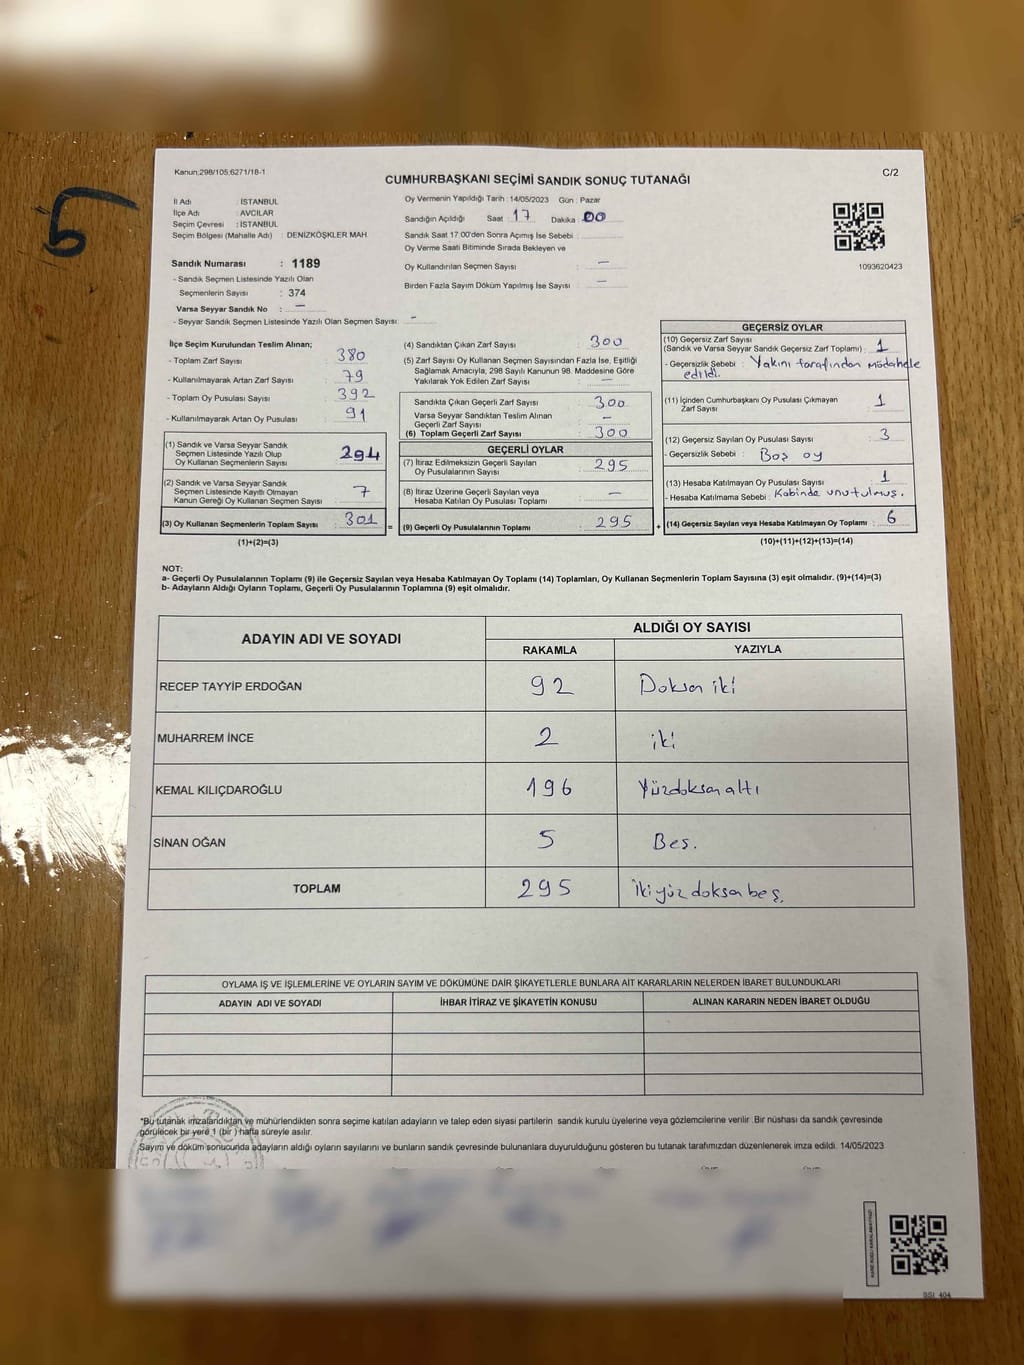 5
Kanun,298/105;6271/18-1
C/2
CUMHURBAŞKANI SEÇİMİ SANDIK SONUÇ TUTANAĞI
İl Adı : İSTANBUL
İlçe Adı : AVCILAR
Seçim Çevresi : İSTANBUL
Seçim Bölgesi (Mahalle Adı) : DENİZKÖŞKLER MAH
Sandık Numarası : 1189
- Sandık Seçmen Listesinde Yazılı Olan
Seçmenlerin Sayısı : 374
Varsa Seyyar Sandık No : —
- Seyyar Sandık Seçmen Listesinde Yazılı Olan Seçmen Sayısı: -
Oy Vermenin Yapıldığı Tarih : 14/05/2023 Gün : Pazar
Sandığın Açıldığı Saat : 17 Dakika : 00
Sandık Saat 17:00'den Sonra Açımış İse Sebebi :
Oy Verme Saati Bitiminde Sırada Bekleyen ve
Oy Kullandırılan Seçmen Sayısı : —
Birden Fazla Sayım Döküm Yapılmış İse Sayısı : —
1093620423
İlçe Seçim Kurulundan Teslim Alınan;
- Toplam Zarf Sayısı : 380
- Kullanılmayarak Artan Zarf Sayısı : 79
- Toplam Oy Pusulası Sayısı : 392
- Kullanılmayarak Artan Oy Pusulası : 91
(1) Sandık ve Varsa Seyyar Sandık
Seçmen Listesinde Yazılı Olup
Oy Kullanan Seçmenlerin Sayısı : 294
(2) Sandık ve Varsa Seyyar Sandık
Seçmen Listesinde Kayıtlı Olmayan
Kanun Gereği Oy Kullanan Seçmen Sayısı : 7
(3) Oy Kullanan Seçmenlerin Toplam Sayısı : 301
(1)+(2)=(3)
(4) Sandıktan Çıkan Zarf Sayısı : 300
(5) Zarf Sayısı Oy Kullanan Seçmen Sayısından Fazla İse, Eşitliği
Sağlamak Amacıyla, 298 Sayılı Kanunun 98. Maddesine Göre
Yakılarak Yok Edilen Zarf Sayısı : —
Sandıkta Çıkan Geçerli Zarf Sayısı : 300
Varsa Seyyar Sandıktan Teslim Alınan
Geçerli Zarf Sayısı : —
(6) Toplam Geçerli Zarf Sayısı : 300
GEÇERLİ OYLAR
(7) İtiraz Edilmeksizin Geçerli Sayılan
Oy Pusulalarının Sayısı : 295
(8) İtiraz Üzerine Geçerli Sayılan veya
Hesaba Katılan Oy Pusulası Toplamı : —
= (9) Geçerli Oy Pusulalarının Toplamı : 295
GEÇERSİZ OYLAR
(10) Geçersiz Zarf Sayısı
(Sandık ve Varsa Seyyar Sandık Geçersiz Zarf Toplamı) : 1
- Geçersizlik Sebebi : Yakını tarafından müdahele
edildi.
(11) İçinden Cumhurbaşkanı Oy Pusulası Çıkmayan
Zarf Sayısı : 1
(12) Geçersiz Sayılan Oy Pusulası Sayısı : 3
- Geçersizlik Sebebi : Boş oy
(13) Hesaba Katılmayan Oy Pusulası Sayısı : 1
- Hesaba Katılmama Sebebi : Kabinde unutulmuş.
+ (14) Geçersiz Sayılan veya Hesaba Katılmayan Oy Toplamı : 6
(10)+(11)+(12)+(13)=(14)
NOT:
a- Geçerli Oy Pusulalarının Toplamı (9) ile Geçersiz Sayılan veya Hesaba Katılmayan Oy Toplamı (14) Toplamları, Oy Kullanan Seçmenlerin Toplam Sayısına (3) eşit olmalıdır. (9)+(14)=(3)
b- Adayların Aldığı Oyların Toplamı, Geçerli Oy Pusulalarının Toplamına (9) eşit olmalıdır.
ADAYIN ADI VE SOYADI ALDIĞI OY SAYISI
RAKAMLA YAZIYLA
RECEP TAYYİP ERDOĞAN 92 Doksan iki
MUHARREM İNCE 2 iki
KEMAL KILIÇDAROĞLU 196 Yüzdoksan altı
SİNAN OĞAN 5 Beş.
TOPLAM 295 İkiyüz doksan beş.
OYLAMA İŞ VE İŞLEMLERİNE VE OYLARIN SAYIM VE DÖKÜMÜNE DAİR ŞİKAYETLERLE BUNLARA AİT KARARLARIN NELERDEN İBARET BULUNDUKLARI
ADAYIN ADI VE SOYADI İHBAR İTİRAZ VE ŞİKAYETİN KONUSU ALINAN KARARIN NEDEN İBARET OLDUĞU
*Bu tutanak imzalandıktan ve mühürlendikten sonra seçime katılan adayların ve talep eden siyasi partilerin sandık kurulu üyelerine veya gözlemcilerine verilir .Bir nüshası da sandık çevresinde
görülecek bir yere 1 (bir ) hafta süreyle asılır.
Sayım ve döküm sonucunda adayların aldığı oyların sayılarını ve bunların sandık çevresinde bulunanlara duyurulduğunu gösteren bu tutanak tarafımızdan düzenlenerek imza edildi. 14/05/2023